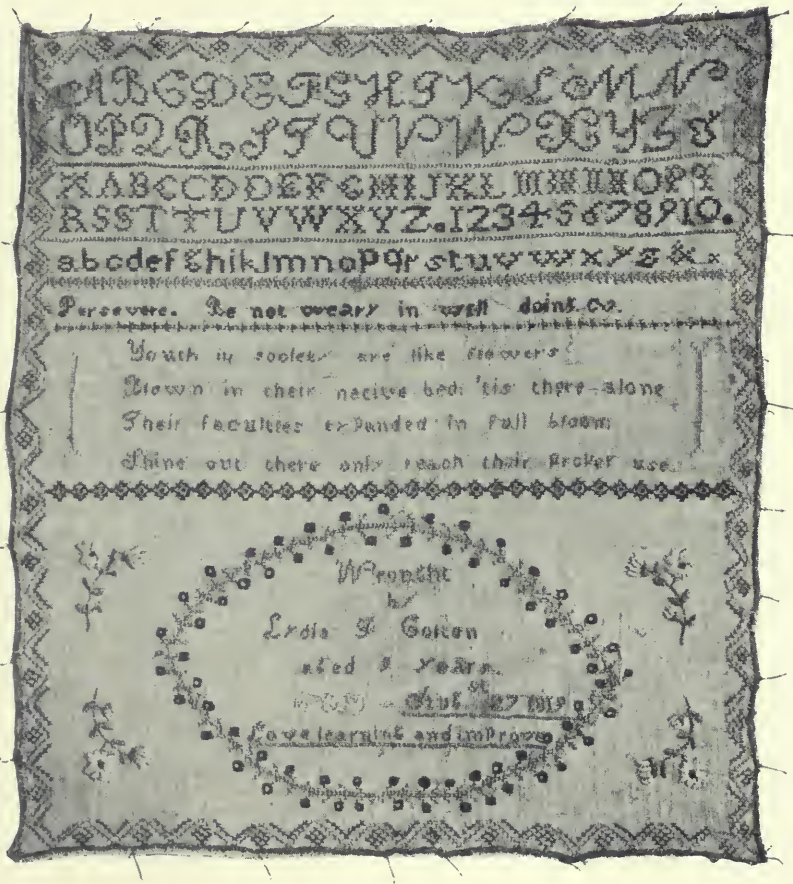 A B C D E F G H I K L M N
O P Q R S T U V W X Y Z &
A B C C D D E F G H I J K L M N O P Q
R S S T T U V W X Y Z . 1 2 3 4 5 6 7 8 9 10 .
a b c d e f g h i k l m n o p q r s t u v w x y z &
Persevere. Be not weary in well doing. Co.
Youth in society are like flowers
Blown in their native bed: 'tis there alone
Their faculties expanded in full bloom
Shine out there only reach their proper use.
Wrought
by
Lydia J Cotton
aged 9 years.
27 1819
Love learning and improve